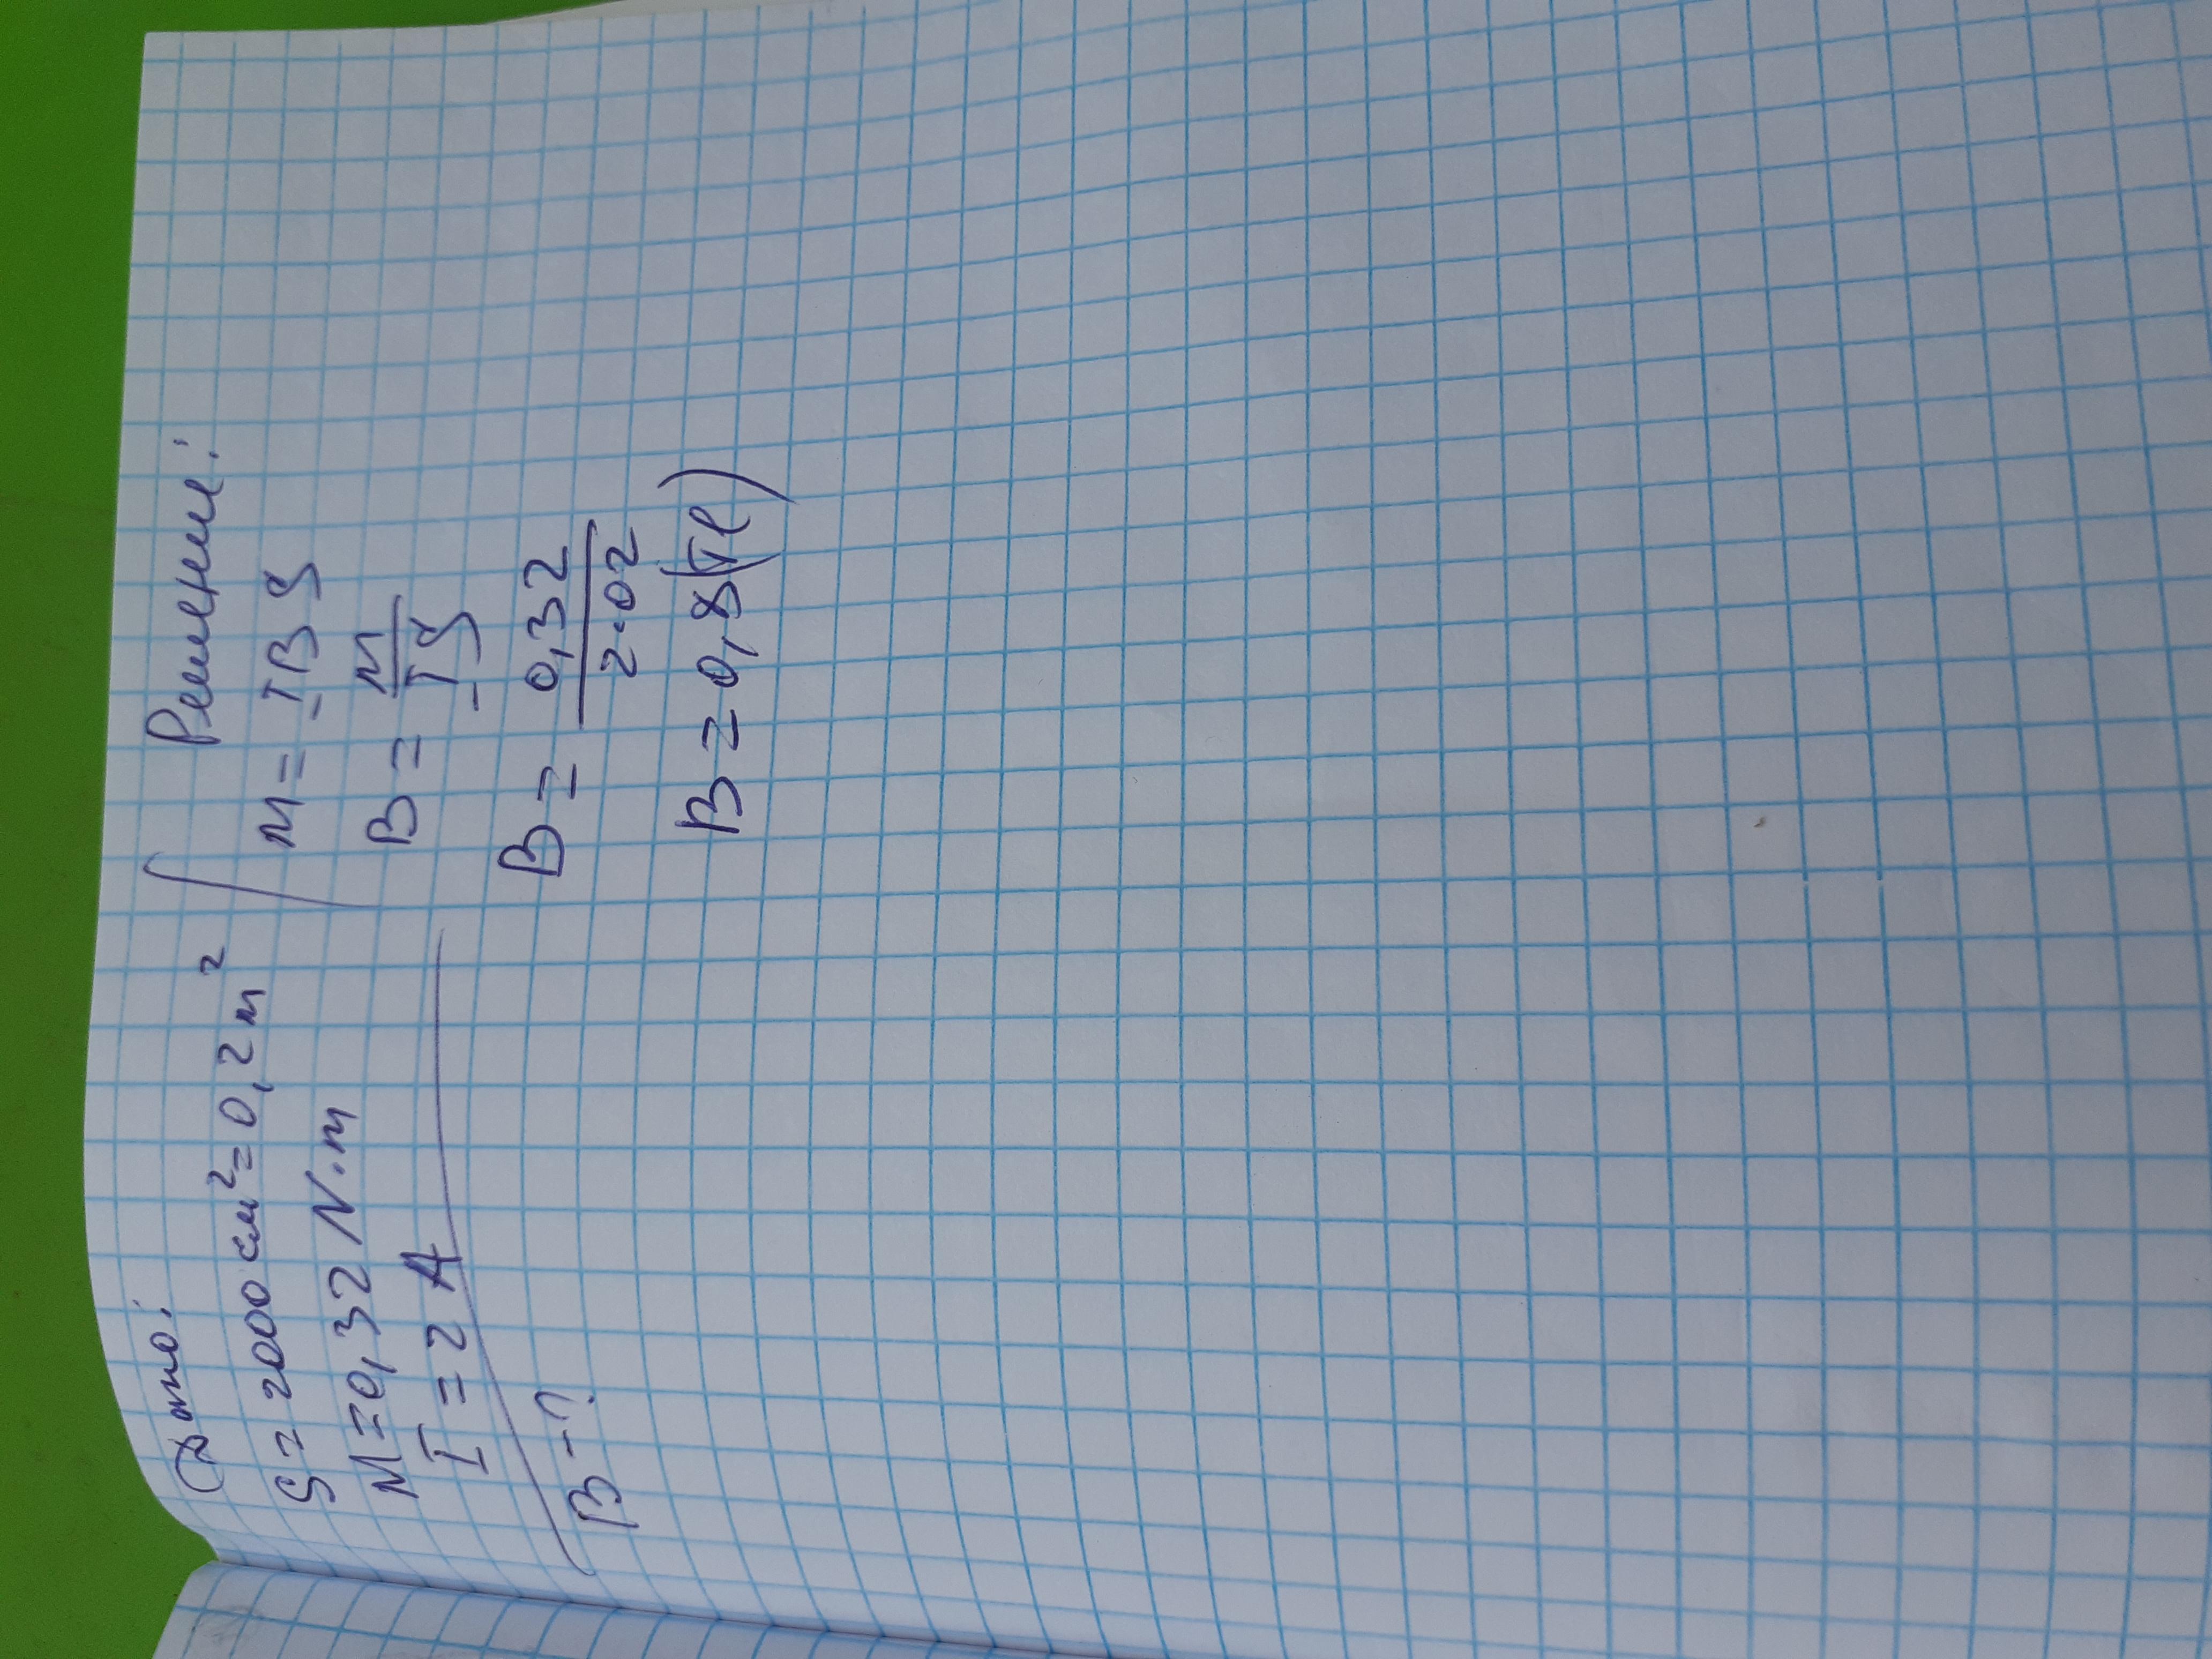 Дано:
S = 2000 см² = 0,2 м²
M = 0,32 N·m
I = 2 A
B - ?
Решение:
M = IBS
B = M / IS
B = 0,32 / 2·02
B = 0,8 (Tl)